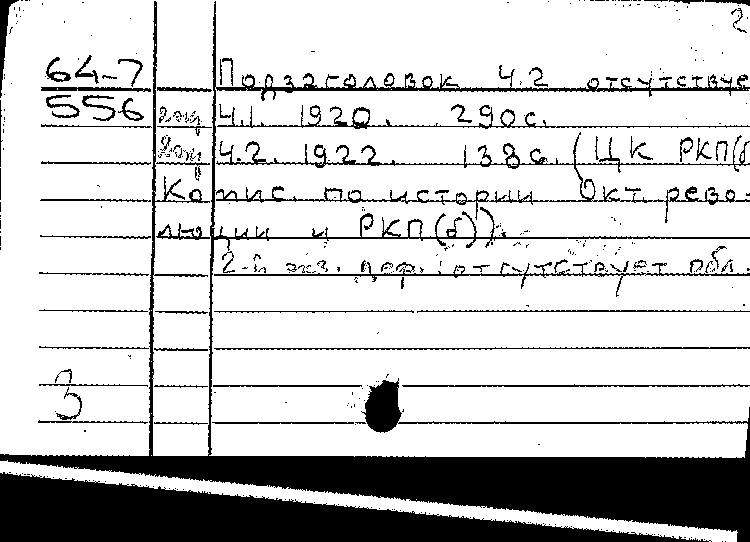 2
64-7 Подзаголовок Ч.2 отсутствуе
556 2экз Ч.1. 1920. 290с.
2экз Ч.2. 1922. 138с. (ЦК РКП(б
Комис. по истории Окт. рево-
люции и РКП(б)).
2-й экз. деф.: отсутствует обл.
3